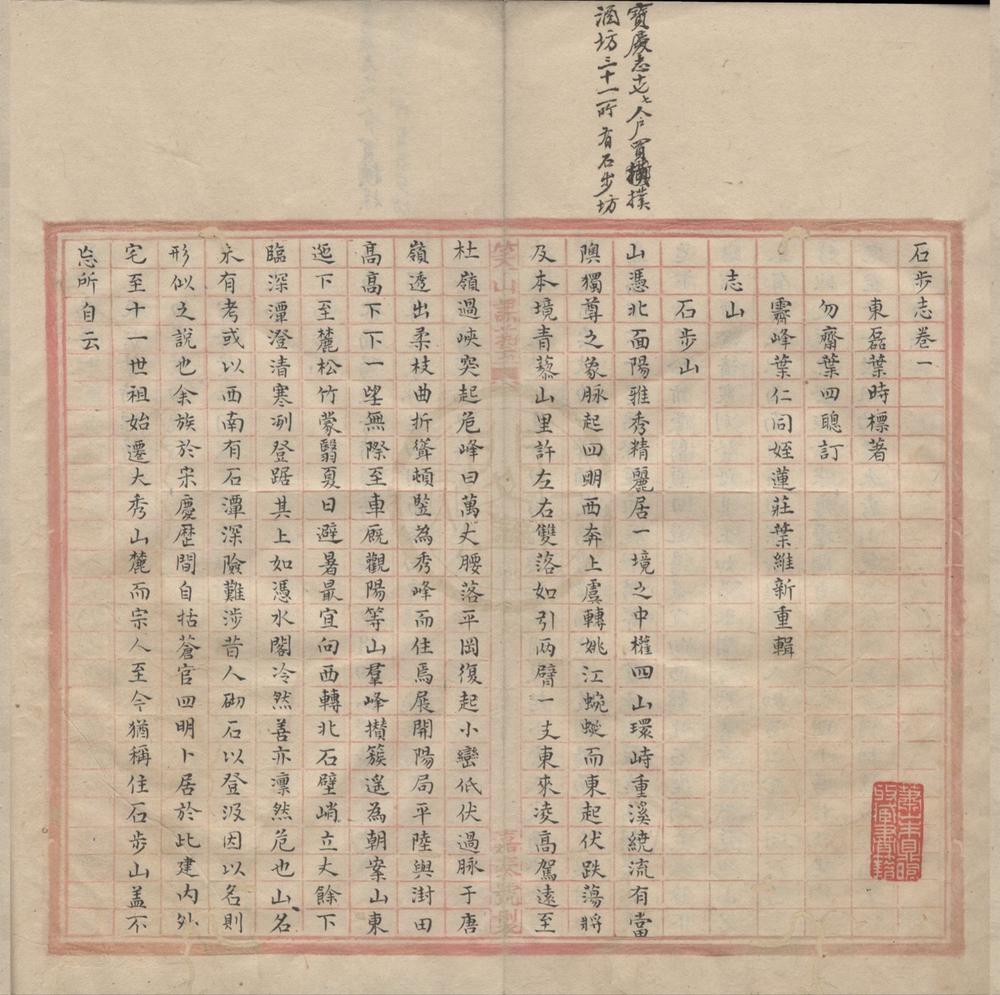 寶慶志十七人戶買撲
酒坊三十一所有石步坊
石步志卷一
東磊葉時標著
勿齋葉四聰訂
霽峰葉仁同姪蓮莊葉維新重輯
志山
石步山
山憑北面陽雅秀精麗居一境之中權四山環峙重溪繞流有當
隩獨尊之象脉起四明西奔上虞轉姚江蜿蜒而東起伏跌蕩將
及本境青藜山里許左右雙落如引兩臂一支東來凌高駕遠至
杜嶺過峽突起危峰曰萬丈腰落平岡復起小巒低伏過脉于唐
嶺透出柔枝曲折聳頓竪為秀峰而住焉展開陽局平陸與澍田
高高下下一望無際至車厩觀陽等山羣峰攢簇遙為朝案山東
迤下至麓松竹蒙翳夏日避暑最宜向西轉北石壁峭立丈餘下
臨深潭澄清寒冽登踞其上如憑水閣冷然善亦凛然危也山名
未有考或以西南有石潭深險難涉昔人砌石以登汲因以名則
形似之說也余族於宋慶歷間自括蒼官四明卜居於此建內外
宅至十一世祖始遷大秀山麓而宗人至今猶稱住石步山盖不
忘所自云